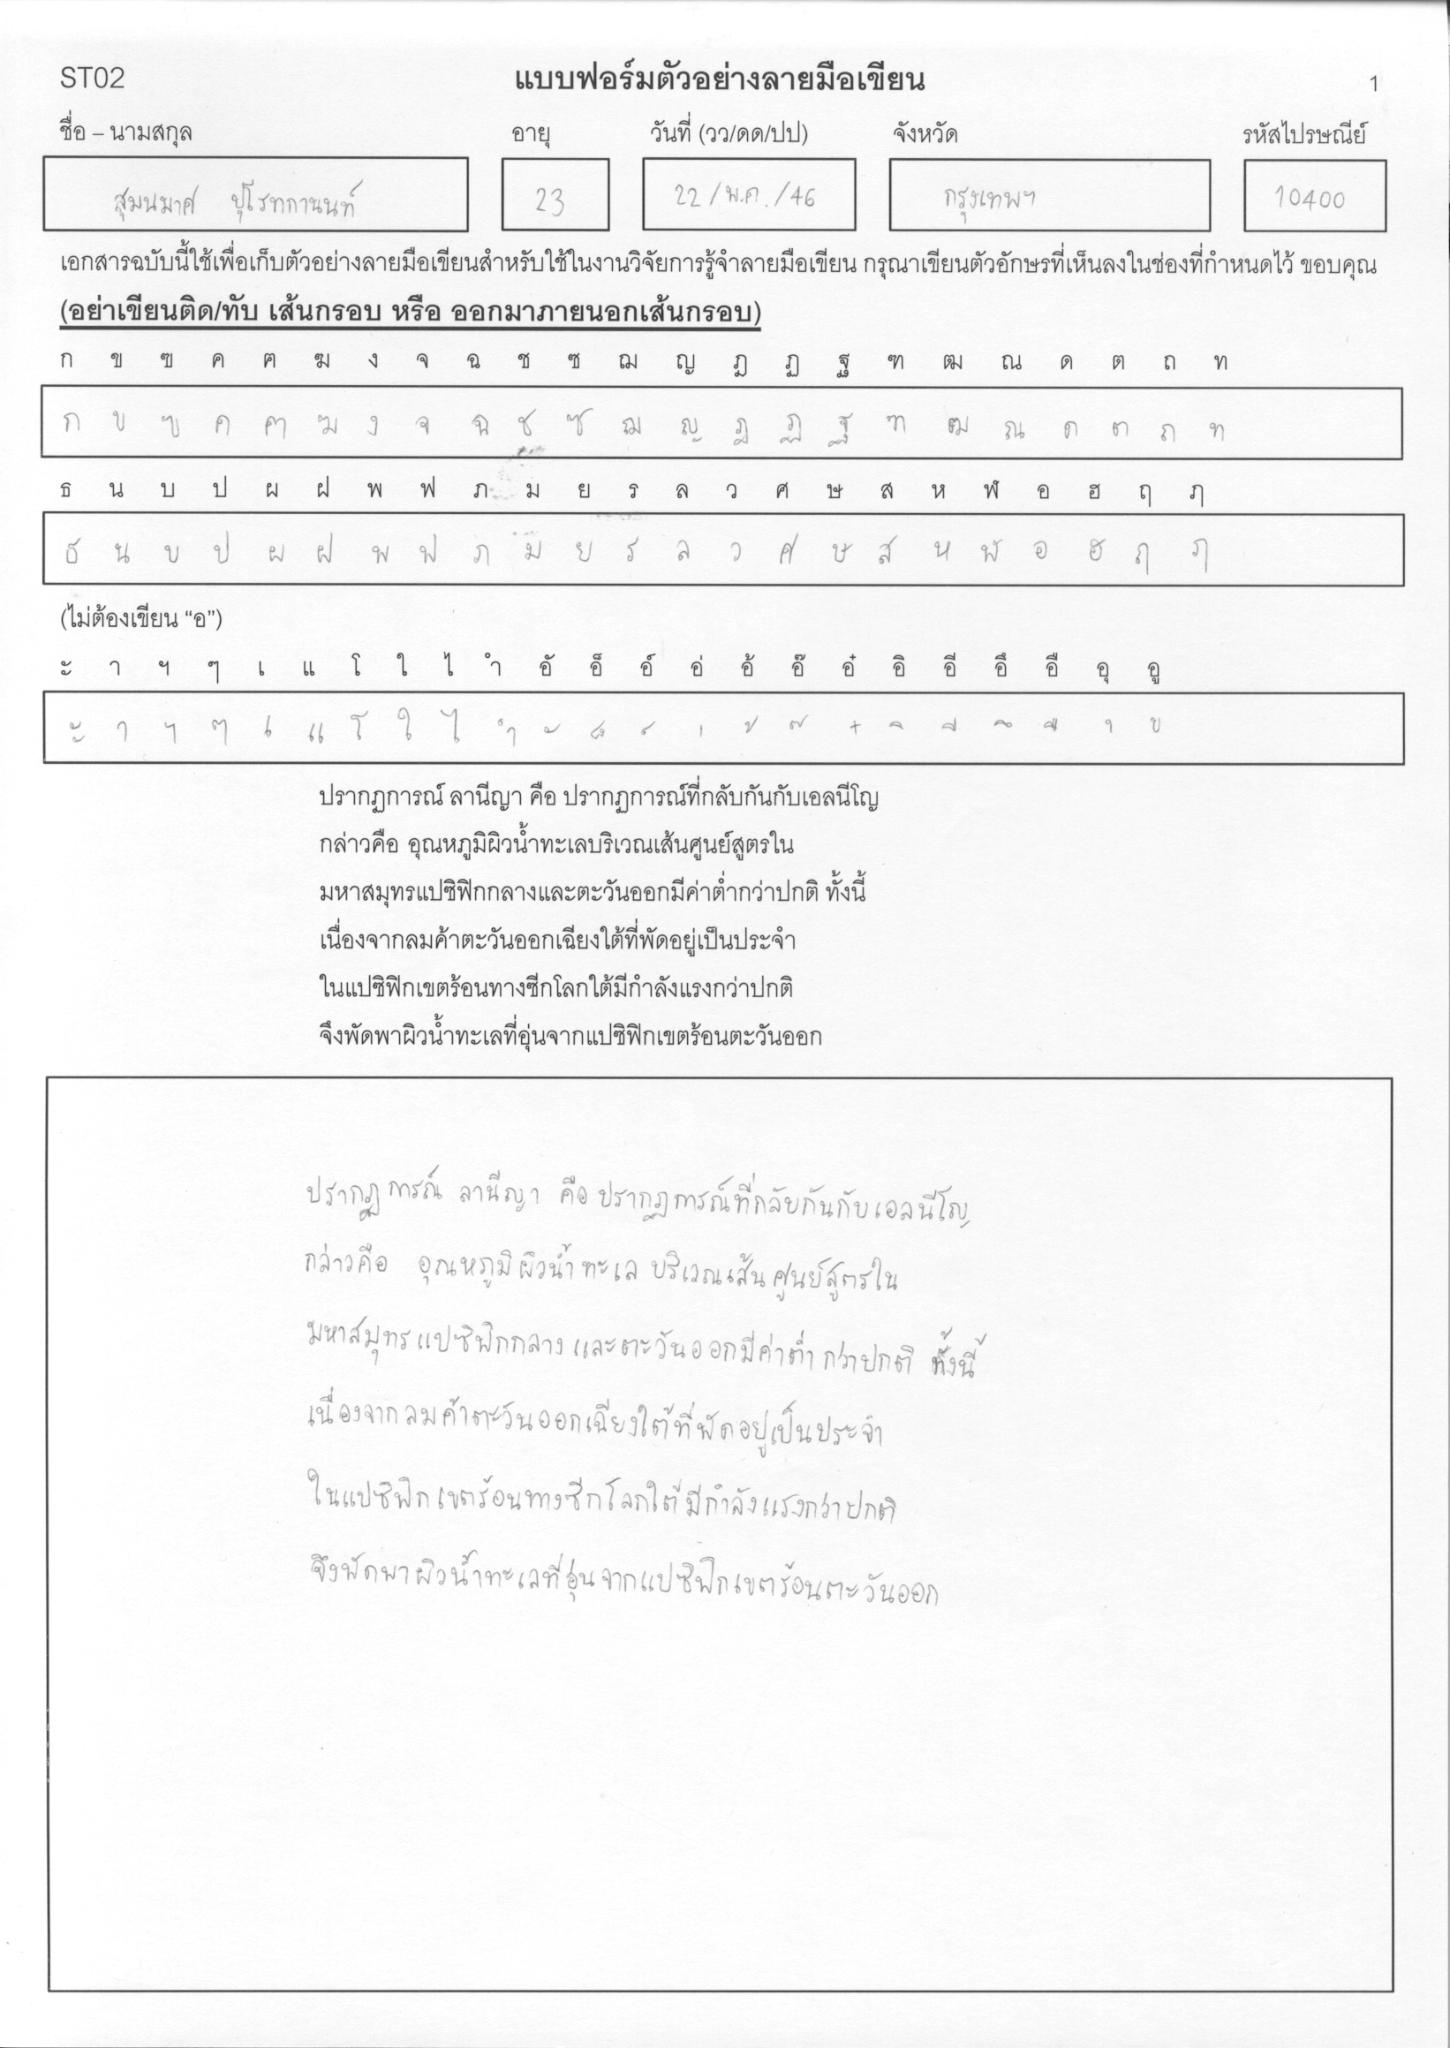 ST02 แบบฟอร์มตัวอย่างลายมือเขียน 1
ชื่อ – นามสกุล อายุ วันที่ (วว/ดด/ปป) จังหวัด รหัสไปรษณีย์
23 22/พ.ค./46 กรุงเทพฯ 10400
เอกสารฉบับนี้ใช้เพื่อเก็บตัวอย่างลายมือเขียนสำหรับใช้ในงานวิจัยการรู้จำลายมือเขียน กรุณาเขียนตัวอักษรที่เห็นลงในช่องที่กำหนดไว้ ขอบคุณ
(อย่าเขียนติด/ทับ เส้นกรอบ หรือ ออกมาภายนอกเส้นกรอบ)
ก ข ฃ ค ฅ ฆ ง จ ฉ ช ซ ฌ ญ ฎ ฏ ฐ ฑ ฒ ณ ด ต ถ ท
ก ข ฃ ค ฅ ฆ ง จ ฉ ช ซ ฌ ญ ฎ ฏ ฐ ฑ ฒ ณ ด ต ถ ท
ธ น บ ป ผ ฝ พ ฟ ภ ม ย ร ล ว ศ ษ ส ห ฬ อ ฮ ฤ ฦ
ธ น บ ป ผ ฝ พ ฟ ภ ม ย ร ล ว ศ ษ ส ห ฬ อ ฮ ฤ ฦ
(ไม่ต้องเขียน “อ”)
ะ า ฯ ๆ เ แ โ ใ ไ ำ อั อ็ อ์ อ่ อ้ อ๊ อ๋ อิ อี อึ อื อุ อู
ะ า ฯ ๆ เ แ โ ใ ไ ำ ั ็ ์ ่ ้ ๊ ๋ ิ ี ึ ื ุ ู
ปรากฏการณ์ ลานีญา คือ ปรากฏการณ์ที่กลับกันกับเอลนีโญ
กล่าวคือ อุณหภูมิผิวน้ำทะเลบริเวณเส้นศูนย์สูตรใน
มหาสมุทรแปซิฟิกกลางและตะวันออกมีค่าต่ำกว่าปกติ ทั้งนี้
เนื่องจากลมค้าตะวันออกเฉียงใต้ที่พัดอยู่เป็นประจำ
ในแปซิฟิกเขตร้อนทางซีกโลกใต้มีกำลังแรงกว่าปกติ
จึงพัดพาผิวน้ำทะเลที่อุ่นจากแปซิฟิกเขตร้อนตะวันออก
ปรากฏการณ์ ลานีญา คือ ปรากฏการณ์ที่กลับกันกับเอลนีโญ
กล่าวคือ อุณหภูมิผิวน้ำทะเล บริเวณเส้นศูนย์สูตรใน
มหาสมุทรแปซิฟิกกลางและตะวันออกมีค่าต่ำกว่าปกติ ทั้งนี้
เนื่องจากลมค้าตะวันออกเฉียงใต้ที่พัดอยู่เป็นประจำ
ในแปซิฟิกเขตร้อนทางซีกโลกใต้มีกำลังแรงกว่าปกติ
จึงพัดพาผิวน้ำทะเลที่อุ่นจากแปซิฟิกเขตร้อนตะวันออก